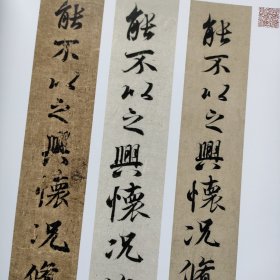 能不以之興懷况脩
能不以之興懷况
能不以之興懷况脩